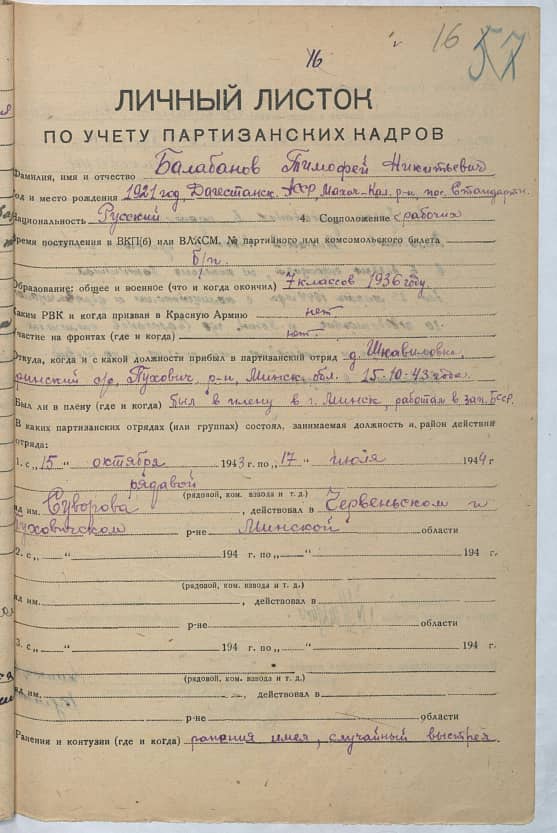 16 57
16
ЛИЧНЫЙ ЛИСТОК
ПО УЧЕТУ ПАРТИЗАНСКИХ КАДРОВ
Фамилия, имя и отчество Балабанов Тимофей Никитьевич
Год и место рождения 1921 год, Дагестанск. АССР, Махач-Кал. р-н, пос. Стандарт
Национальность Русский 4. Соцположение рабочих
Время поступления в ВКП(б) или ВЛКСМ, № партийного или комсомольского билета
б/п.
Образование: общее и военное (что и когда окончил) 7 классов 1936 году.
Каким РВК и когда призван в Красную Армию нет
Участие на фронтах (где и когда) нет.
Откуда, когда и с какой должности прибыл в партизанский отряд д.
с/с, Пухович. р-н, Минск. обл. 15.10.43 года.
Был ли в плену (где и когда) был в плену в г. Минск, работал в БССР.
В каких партизанских отрядах (или группах) состоял, занимаемая должность и район действия
отряда:
1. с „15" октября 1943 г. по „17" июля 1944 г
рядавой
(рядовой, ком. взвода и т. д.)
яд им. Суворова, действовал в Червеньском и
Пуховичском р-не Минской области
2. с „ " 194 г. по „ " 194 г.
(рядовой, ком. взвода и т. д.)
яд им. , действовал в
р-не области
3. с „ " 194 г. по „ " 194 г.
(рядовой, ком. взвода и т. д.)
яд им. , действовал в
р-не области
Ранения и контузии (где и когда) ранения имел, случайный выстрел.